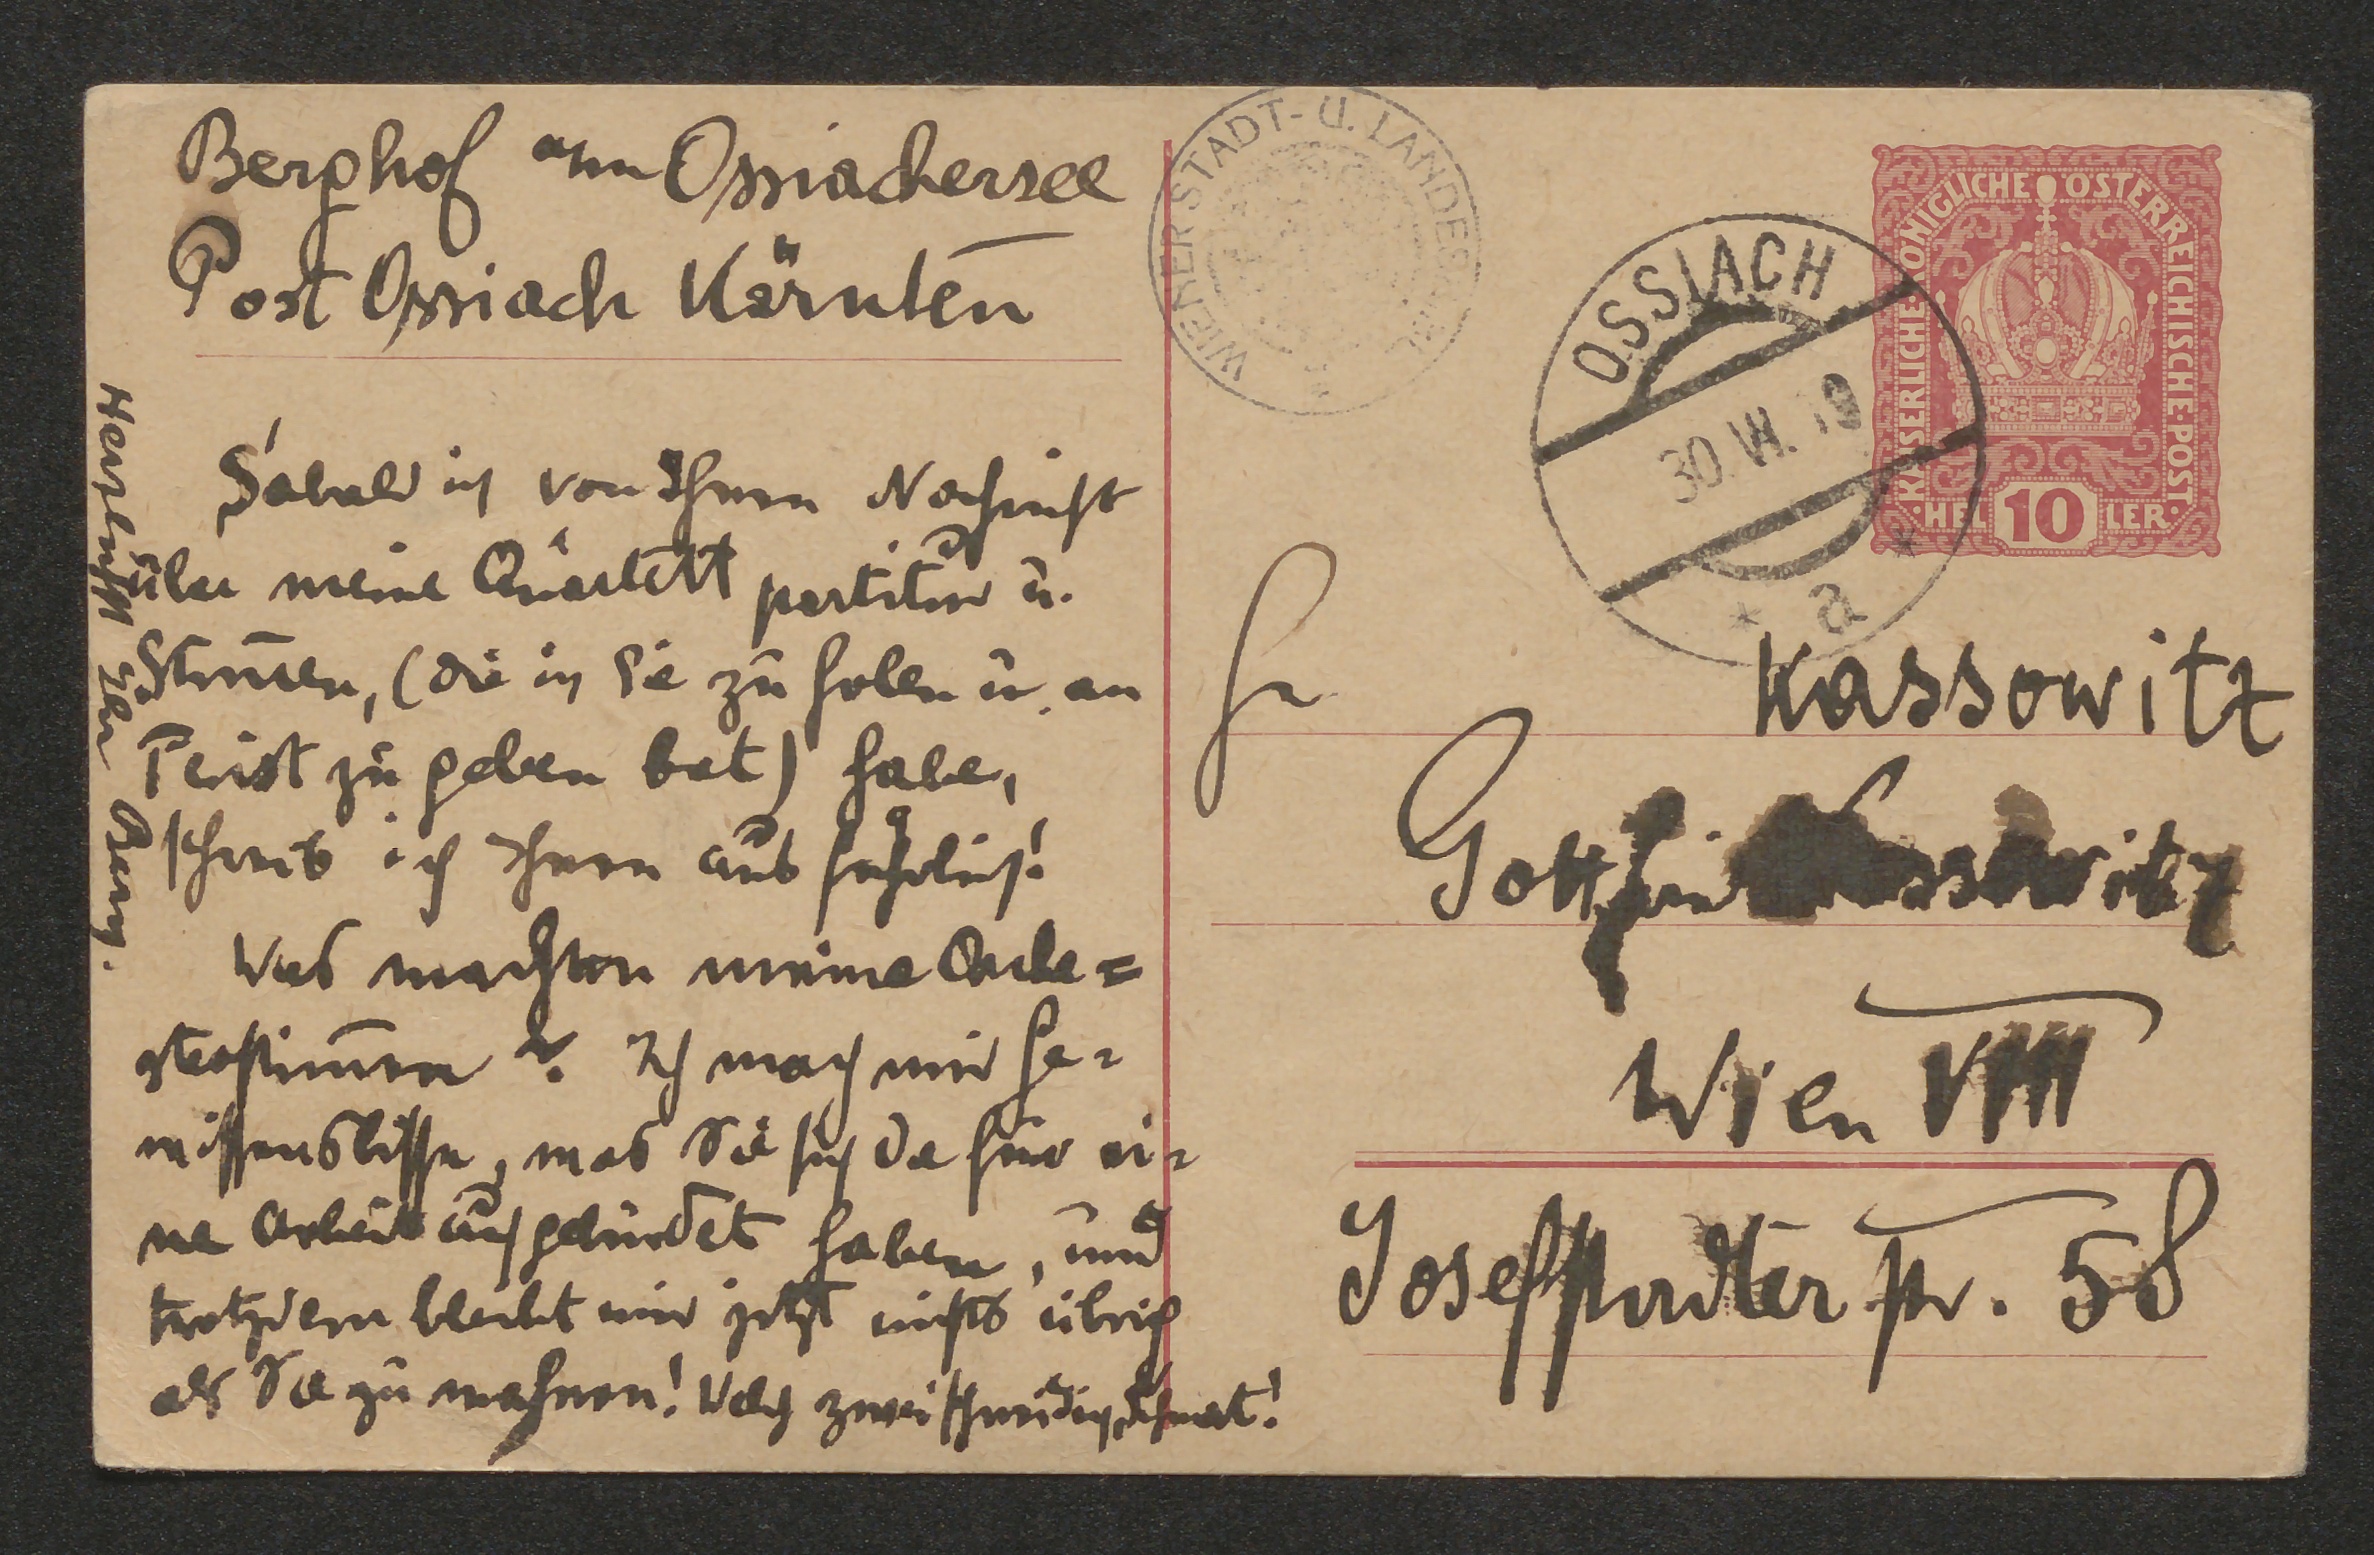 Berghof am Ossiachersee
Post Ossiach Kärnten
Sobald ich von Ihnen Nachricht
über meine Quartett partitur u.
Stimen, (die ich Sie zu holen u. an
Perist zu geben bat) habe,
schreib ich Ihnen aus führlich!
Was machten meine Orche=
sterstimen? Ich mach mir Ge=
wissensbisse, was Sie sich da für ei=
ne Arbeit aufgebürdet haben, und
trotzdem bleibt mir jetzt nichts übrig
als Sie zu mahnen! Welch zweischneidig
Herzlichst Ihr Berg.
WIENER STADT- U. LANDES
KAISERLICHE KÖNIGLICHE ÖSTERREICHISCHE POST
HEL 10 LER
OSSIACH
30. VII. 19
* a *
Hr
Kassowitz
Gottfried Kassowitz
Wien VIII
Josefstädter str. 58